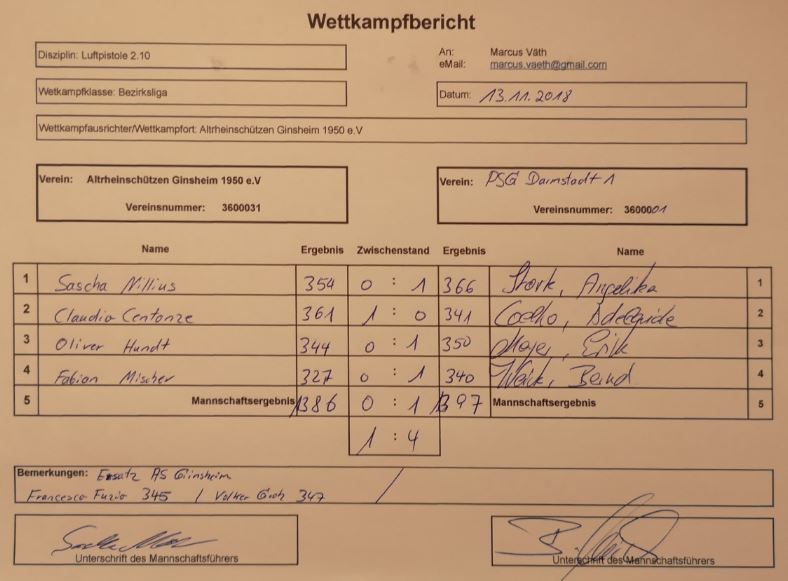 Wettkampfbericht
Disziplin: Luftpistole 2.10
An: Marcus Väth
eMail: marcus.vaeth@gmail.com
Wetkampfklasse: Bezirksliga
Datum: 13.11.2018
Wettkampfausrichter/Wettkampfort: Altrheinschützen Ginsheim 1950 e.V
Verein: Altrheinschützen Ginsheim 1950 e.V
Verein: PSG Darmstadt 1
Vereinsnummer: 3600031
Vereinsnummer: 3600001
Name Ergebnis Zwischenstand Ergebnis Name
1 Sascha Nillius 354 0 : 1 366 Stork, Angelika 1
2 Claudia Centonze 361 1 : 0 341 Coelho, Adelaide 2
3 Oliver Hundt 344 0 : 1 350 Erik 3
4 Fabian Mischer 327 0 : 1 340 Bernd 4
5 Mannschaftsergebnis 1386 0 : 1 1397 Mannschaftsergebnis 5
1 : 4
Bemerkungen: Ersatz AS Ginsheim
Francesco 345 / Volker 347 /
Unterschrift des Mannschaftsführers
Unterschrift des Mannschaftsführers